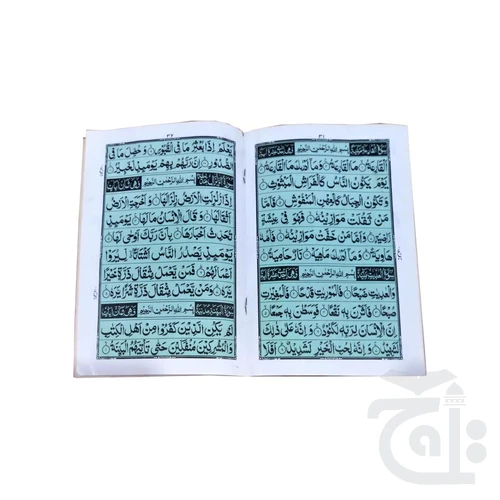 سورة القارعة مكية بسم الله الرحمن الرحيم
اَلْقَارِعَةُ ۝ مَا الْقَارِعَةُ ۝ وَمَا اَدْرٰىكَ مَا الْقَارِعَةُ ۝
يَوْمَ يَكُوْنُ النَّاسُ كَالْفَرَاشِ الْمَبْثُوْثِ ۝
وَتَكُوْنُ الْجِبَالُ كَالْعِهْنِ الْمَنْفُوْشِ ۝ فَاَمَّا
مَنْ ثَقُلَتْ مَوَازِيْنُهٗ ۝ فَهُوَ فِيْ عِيْشَةٍ
رَّاضِيَةٍ ۝ وَاَمَّا مَنْ خَفَّتْ مَوَازِيْنُهٗ ۝ فَاُمُّهٗ
هَاوِيَةٌ ۝ وَمَا اَدْرٰىكَ مَاهِيَهْ ۝ نَارٌ حَامِيَةٌ ۝
بسم الله الرحمن الرحيم
وَالْعٰدِيٰتِ ضَبْحًا ۝ فَالْمُوْرِيٰتِ قَدْحًا ۝ فَالْمُغِيْرٰتِ
صُبْحًا ۝ فَاَثَرْنَ بِهٖ نَقْعًا ۝ فَوَسَطْنَ بِهٖ جَمْعًا ۝
اِنَّ الْاِنْسَانَ لِرَبِّهٖ لَكَنُوْدٌ ۝ وَاِنَّهٗ عَلٰى ذٰلِكَ
لَشَهِيْدٌ ۝ وَاِنَّهٗ لِحُبِّ الْخَيْرِ لَشَدِيْدٌ ۝ اَفَلَا
يَعْلَمُ اِذَا بُعْثِرَ مَا فِي الْقُبُوْرِ ۝ وَحُصِّلَ مَا فِي
الصُّدُوْرِ ۝ اِنَّ رَبَّهُمْ بِهِمْ يَوْمَئِذٍ لَّخَبِيْرٌ ۝
بسم الله الرحمن الرحيم
اِذَا زُلْزِلَتِ الْاَرْضُ زِلْزَالَهَا ۝ وَاَخْرَجَتِ الْاَرْضُ
اَثْقَالَهَا ۝ وَقَالَ الْاِنْسَانُ مَا لَهَا ۝ يَوْمَئِذٍ
تُحَدِّثُ اَخْبَارَهَا ۝ بِاَنَّ رَبَّكَ اَوْحٰى لَهَا ۝
يَوْمَئِذٍ يَّصْدُرُ النَّاسُ اَشْتَاتًا لِّيُرَوْا
اَعْمَالَهُمْ ۝ فَمَنْ يَّعْمَلْ مِثْقَالَ ذَرَّةٍ خَيْرًا
يَّرَهٗ ۝ وَمَنْ يَّعْمَلْ مِثْقَالَ ذَرَّةٍ شَرًّا يَّرَهٗ ۝
بسم الله الرحمن الرحيم
لَمْ يَكُنِ الَّذِيْنَ كَفَرُوْا مِنْ اَهْلِ الْكِتٰبِ
وَالْمُشْرِكِيْنَ مُنْفَكِّيْنَ حَتّٰى تَاْتِيَهُمُ الْبَيِّنَةُ ۝